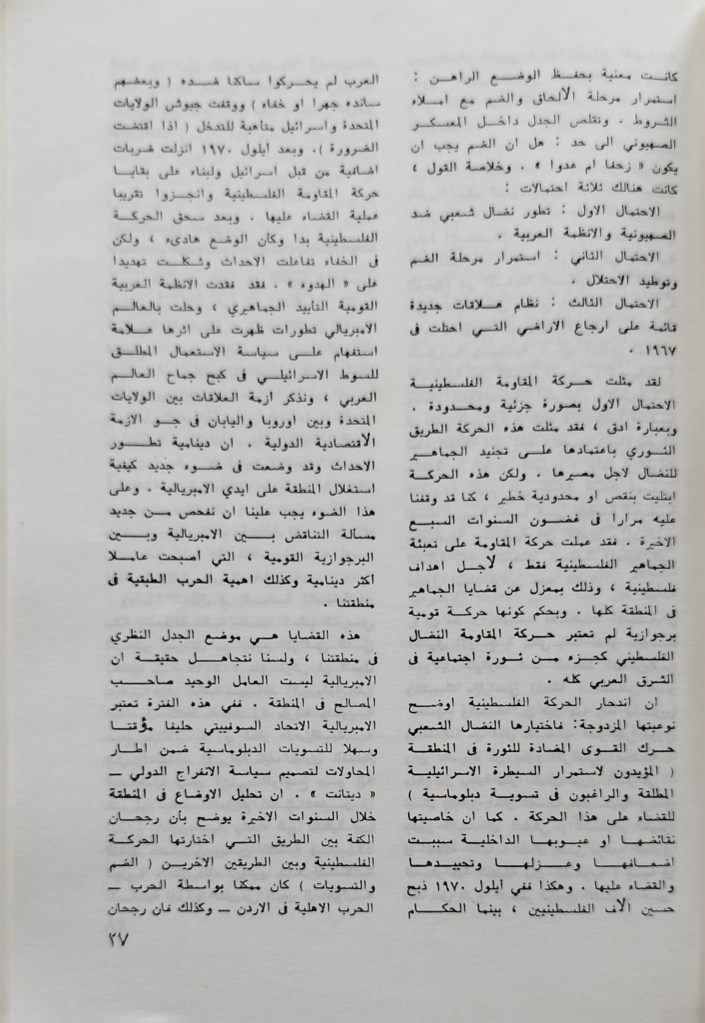 كانت معنية بحفظ الوضع الراهن :
استمرار مرحلة الألحاق والضم مع املاء
الشروط . وتقلص الجدل داخل المعسكر
الصهيوني الى حد : هل ان الضم يجب ان
يكون « زحفا ام عدوا » . وخلاصة القول ،
كانت هنالك ثلاثة احتمالات :
الاحتمال الاول : تطور نضال شعبي ضد
الصهيونية والانظمة العربية .
الاحتمال الثاني : استمرار مرحلة الضم
وتوطيد الاحتلال .
الاحتمال الثالث : نظام علاقات جديدة
قائمة على ارجاع الاراضي التي احتلت في
١٩٦٧ .
لقد مثلت حركة المقاومة الفلسطينية
الاحتمال الاول بصورة جزئية ومحدودة .
وبعبارة ادق ، فقد مثلت هذه الحركة الطريق
الثوري باعتمادها على تجنيد الجماهير
للنضال لاجل مصيرها . ولكن هذه الحركة
ابتليت بنقص او محدودية خطير ، كنا قد وقفنا
عليه مرارا في غضون السنوات السبع
الاخيرة . فقد عملت حركة المقاومة على تعبئة
الجماهير الفلسطينية فقط ، لأجل اهداف
فلسطينية ، وذلك بمعزل عن قضايا الجماهير
في المنطقة كلها . وبحكم كونها حركة قومية
برجوازية لم تعتبر حركة المقاومة النضال
الفلسطيني كجزء من ثورة اجتماعية في
الشرق العربي كله .
ان اندحار الحركة الفلسطينية اوضح
نوعيتها المزدوجة: فاختيارها النضال الشعبي
حرك القوى المضادة للثورة في المنطقة
( المؤيدون لاستمرار السيطرة الاسرائيلية
المطلقة والراغبون في تسوية دبلوماسية )
للقضاء على هذا الحركة . كما ان خاصيتها
نقائضها او عيوبها الداخلية سببت
اضعافها وعزلها وتحييدها
والقضاء عليها . وهكذا ففي أيلول ١٩٧٠ ذبح
حسين الآف الفلسطينيين ، بينما الحكام
العرب لم يحركوا ساكنا ضده ( وبعضهم
سانده جهرا او خفاء ) ووقفت جيوش الولايات
المتحدة واسرائيل متأهبة للتدخل ( اذا اقتضت
الضرورة ). وبعد أيلول ١٩٧٠ انزلت ضربات
اضافية من قبل اسرائيل ولبناء على بقايا
حركة المقاومة الفلسطينية وانجزوا تقريبا
عملية القضاء عليها . وبعد سحق الحركة
الفلسطينية بدا وكأن الوضع هادىء ، ولكن
في الخفاء تفاعلت الاحداث وشكلت تهديدا
على « الهدوء » . فقد فقدت الانظمة العربية
القومية التأييد الجماهيري ، وحلت بالعالم
الامبريالي تطورات ظهرت على اثرها علامة
استفهام على سياسة الاستعمال المطلق
للسوط الاسرائيلي في كبح جماح العالم
العربي ، ونذكر أزمة العلاقات بين الولايات
المتحدة وبين اوروبا واليابان في جو الازمة
الأقتصادية الدولية . ان دينامية تطور
الاحداث وقد وضعت في ضوء جديد كيفية
استغلال المنطقة على ايدي الامبريالية . وعلى
هذا الضوء يجب علينا ان نفحص من جديد
مسألة التناقض بين الامبريالية وبين
البرجوازية القومية ، التي أصبحت عاملا
اكثر دينامية وكذلك اهمية الحرب الطبقية في
منطقتنا .
هذه القضايا هي موضع الجدل النظري
في منطقتنا ، ولسنا نتجاهل حقيقة ان
الامبريالية ليست العامل الوحيد صاحب
المصالح في المنطقة . ففي هذه الفترة تعتبر
الامبريالية الاتحاد السوفييتي حليفا مؤقتا
وسهلا للتسويات الدبلوماسية ضمن اطار
المحاولات لتصميم سياسة الانفراج الدولي —
« ديتانت » . ان تحليل الاوضاع في المنطقة
خلال السنوات الاخيرة يوضح بأن رجحان
الكفة بين الطريق التي اختارتها الحركة
الفلسطينية وبين الطريقين الاخرين ( الضم
والتسويات ) كان ممكنا بواسطة الحرب —
الحرب الاهلية في الاردن — وكذلك فان رجحان
٢٧